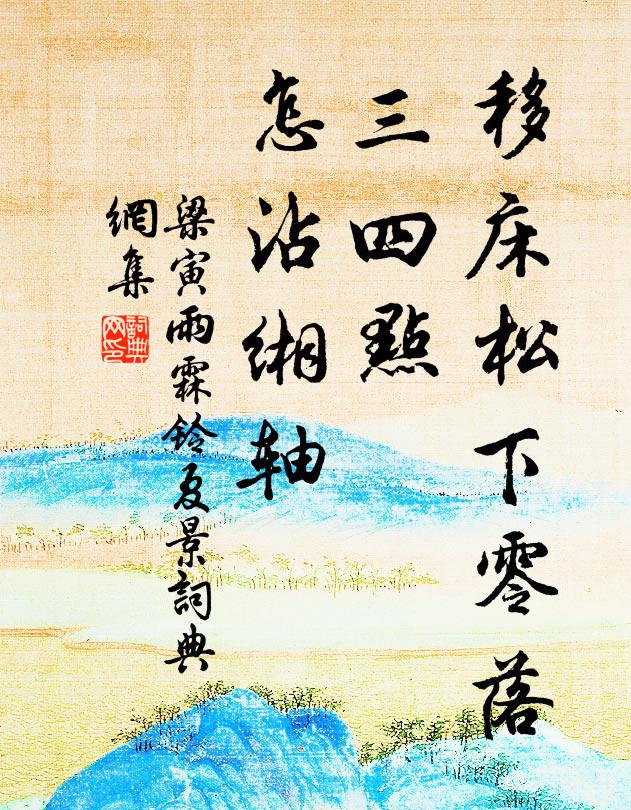 移床松下零落
三四點
怎沾緗軸
梁寅雨霖鈴夏景詞典
網集
詞典
网印